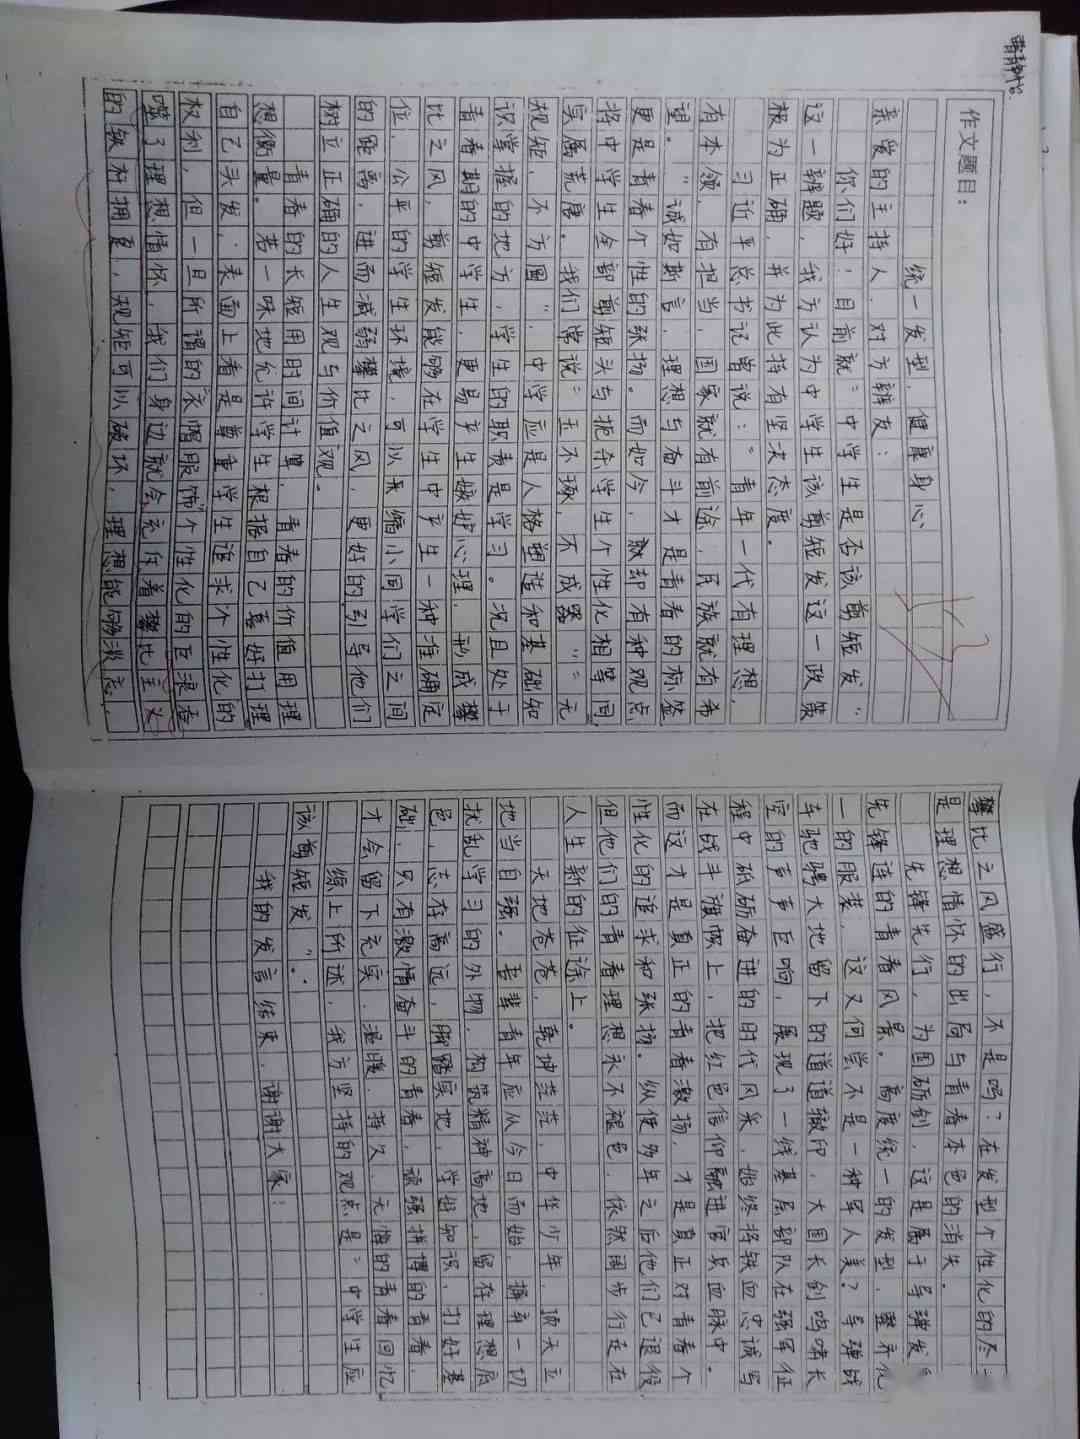 曹静怡
作文题目：
统一发型，健康身心
亲爱的主持人，对方辩友：
你们好！目前就“中学生是否该剪短发”
这一辩题，我方认为中学生该剪短发这一政策
极为正确，并为此持有坚决态度。
习近平总书记曾说：“青年一代有理想，
有本领，有担当，国家就有前途，民族就有希
望。”诚如斯言，理想与奋斗才是青春的标签
更是青春个性的张扬。而如今，却有种观点
将中学生全部剪短头与扼杀学生个性化相等同，
实属荒唐。我们常说“玉不琢，不成器”“无
规矩，不方圆”，中学应是人格塑造和基础知
识掌握的地方，学生的职责是学习。况且处于
青春期的中学生，更易产生嫉妒心理，形成攀
比之风，剪短发能够在学生中产生一种准确定
位，公平的学生环境，可以来缩小同学们之间
的距离，进而减弱攀比之风，更好的引导他们
树立正确的人生观与价值观。
青春的长短用时间计算，青春的价值用理
想衡量。若一味地允许学生根据自己喜好打理
自己头发，表面上看是尊重学生追求个性化的
权利，但一旦所谓的“衣帽服饰”个性化的巨浪吞
噬了理想情怀，我们身边就会充斥着攀比主义
的铁杆拥趸，规矩可以破坏，理想能够淡忘，
攀比之风盛行，不是吗？在发型个性化的尽
是理想情怀的出局与青春本色的消失。
先锋先行，为国砺剑，这是属于导弹发
先锋连的青春风景。高度统一的发型，整齐化
一的服装，这又何尝不是一种军人美？导弹战
车驰骋大地留下的道道辙印，大国长剑鸣啸长
空的声声巨响，展现了一线基层部队在强军征
程中砥砺奋进的时代风采，始终将铁血忠诚写
在战斗旗帜上，把红色信仰融进官兵血脉中。
而这才是真正的青春激扬，才是真正对青春个
性化的追求和张扬。纵使多年之后他们已退役
但他们的青春理想永不褪色，依然阔步行走在
人生新的征途上。
天地苍苍，乾坤茫茫，中华少年，顶天立
地当自强。吾辈青年应从今日而始，摒弃一切
扰乱学习的外物，构筑精神高地，留存理想底
色，志存高远，脚踏实地，学好知识，打好基
础，只有激情奋斗的青春，顽强拼搏的青春，
才会留下充实、温暖、持久、无悔的青春回忆
综上所述，我方坚持的观点是“中学生应
该剪短发”。
我的发言结束，谢谢大家！